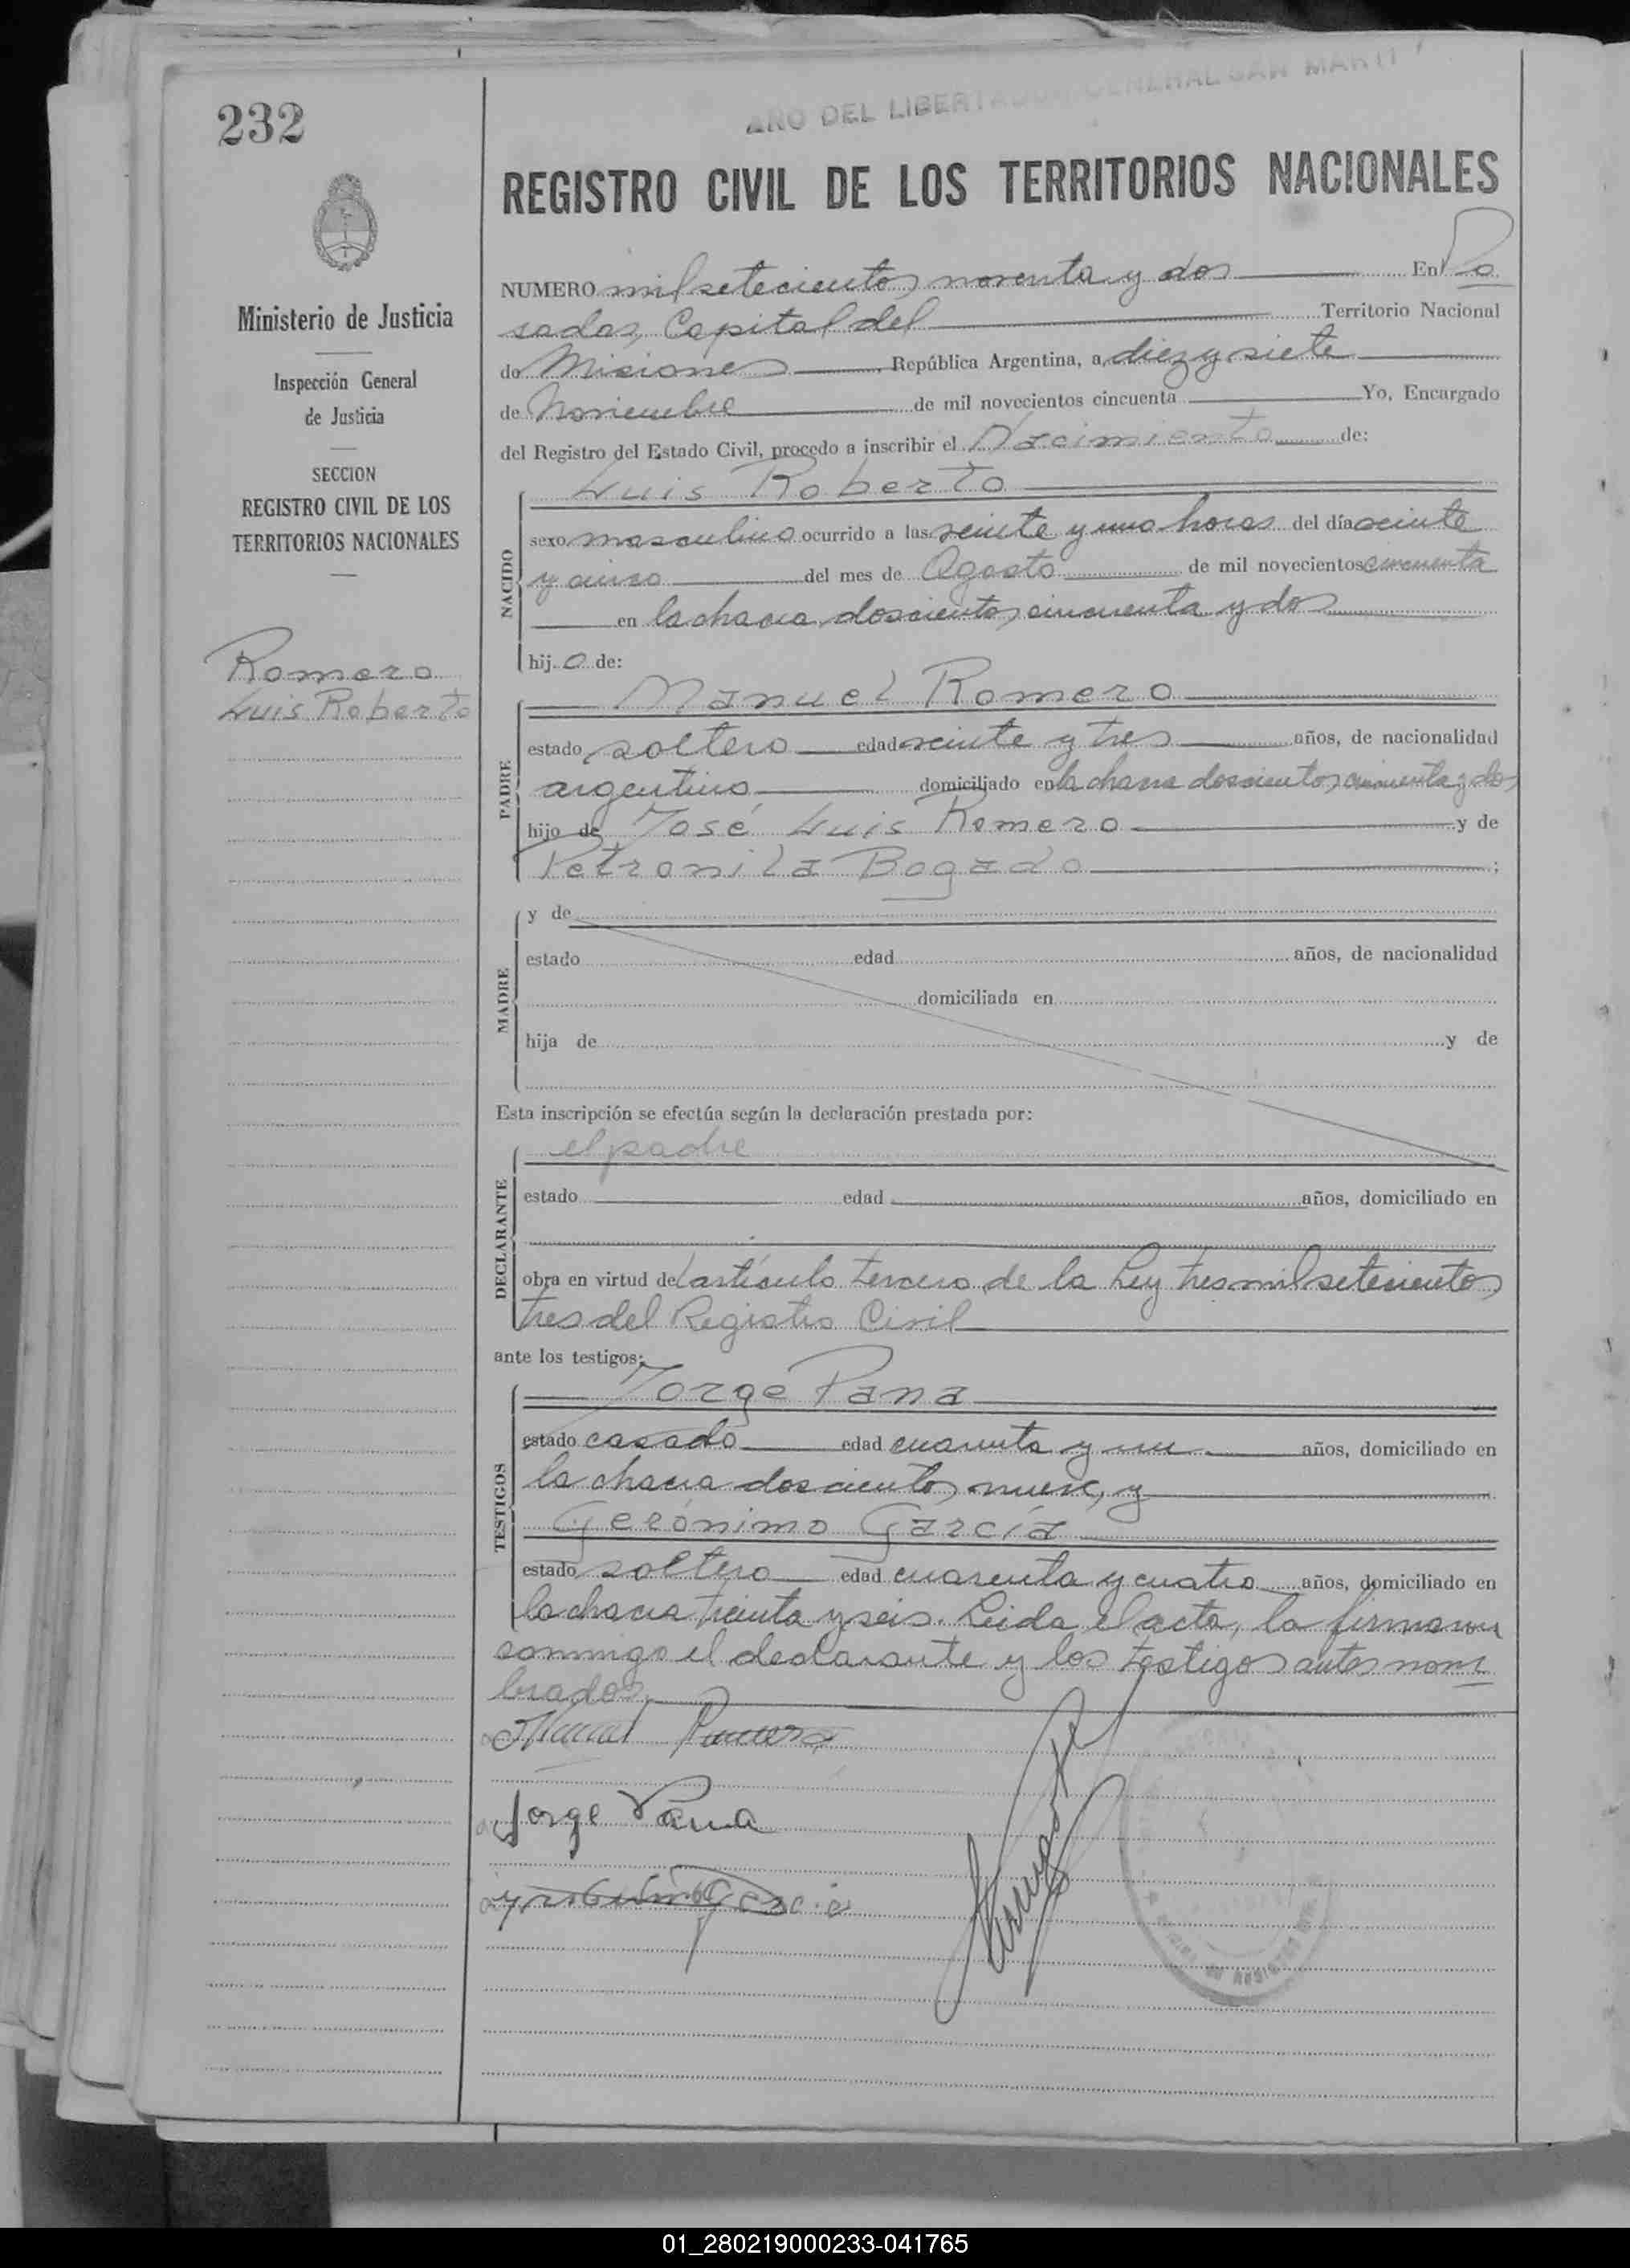 AÑO DEL LIBERTADOR GENERAL SAN MARTI
232
REGISTRO CIVIL DE LOS TERRITORIOS NACIONALES
Ministerio de Justicia
Inspección General
de Justicia
SECCION
REGISTRO CIVIL DE LOS
TERRITORIOS NACIONALES
Romero
Luis Roberto
NUMERO mil setecientos noventa y dos En Po
sadas, Capital del Territorio Nacional
de Misiones, República Argentina, a diez y siete
de Noviembre de mil novecientos cincuenta Yo, Encargado
del Registro del Estado Civil, procedo a inscribir el Nacimiento de:
NACIDO
Luis Roberto
sexo masculino ocurrido a las veinte y una horas del día veinte
y cinco del mes de Agosto de mil novecientos cincuenta
en la chacra doscientos cincuenta y dos
hijo de:
PADRE
Manuel Romero
estado soltero edad veinte y tres años, de nacionalidad
argentino domiciliado en la chacra doscientos cincuenta y dos
hijo de José Luis Romero y de
Petronila Bogado;
MADRE
y de
estado edad años, de nacionalidad
domiciliada en
hija de y de
Esta inscripción se efectúa según la declaración prestada por:
DECLARANTE
el padre
estado edad años, domiciliado en
obra en virtud del artículo tercero de la Ley tres mil setecientos
tres del Registro Civil
ante los testigos:
TESTIGOS
Jorge Pana
estado casado edad cuarenta y un años, domiciliado en
la chacra doscientos nueve, y
Gerónimo García
estado soltero edad cuarenta y cuatro años, domiciliado en
la chacra treinta y seis. Leida el acta, la firmaron
conmigo el declarante y los testigos antes nom
brados.
Manuel Romero
Jorge Pana
Garcia
01_280219000233-041765